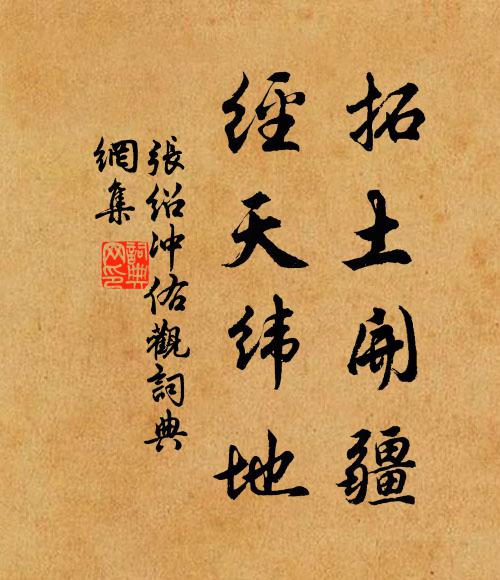 拓土開疆
經天緯地
張紹沖佑觀詞典
網集
詞典
网印